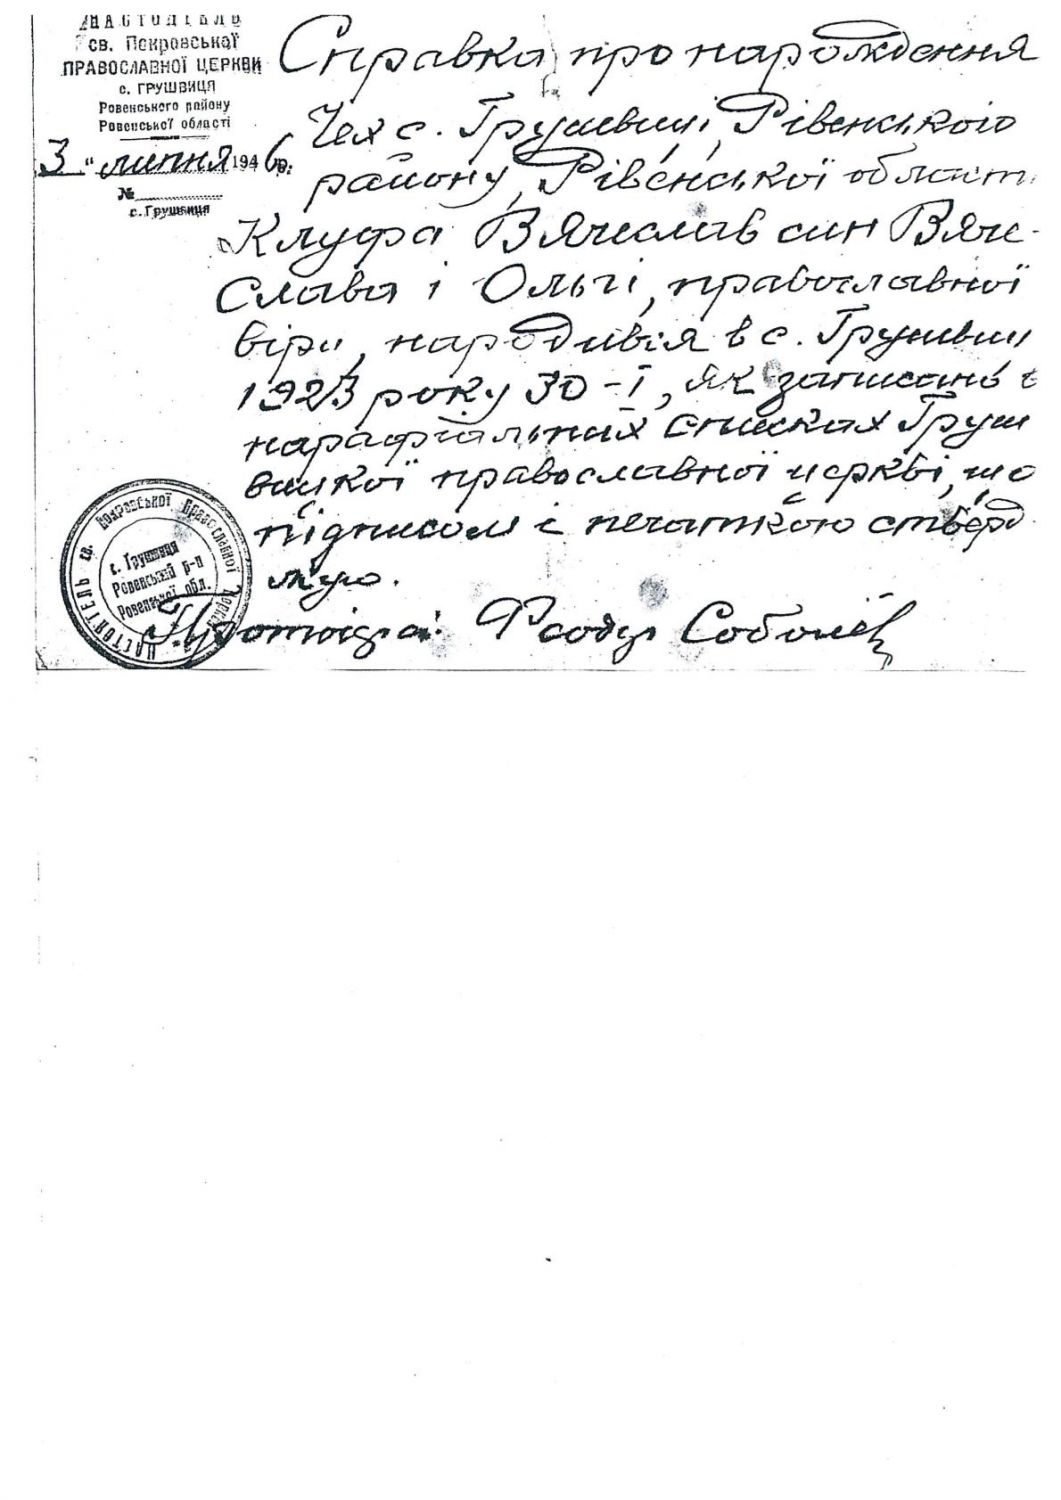 НАСТОЯТЕЛЬ
св. Покровської
ПРАВОСЛАВНОЇ ЦЕРКВИ
с. ГРУШВИЦЯ
Ровенського району
Ровенської області
3 " липня 1946 р.
№
с. Грушвиця
Справка про народження
Чех с. Грушвиці, Рівенського
району, Рівенської област
Клуфа Вячеслав син Вяче-
слава і Ольги, православної
віри, народився в с. Грушвиці
1923 року 30-I, як записань в
парафіальних списках Груш
вицкої православної церкві, що
підписом і печаткою стверд
жую.
Протоієрей Соболев
Настоятель св. Покровської Православної Церкви
с. Грушвиця
Ровенський р-н
Ровенської обл.